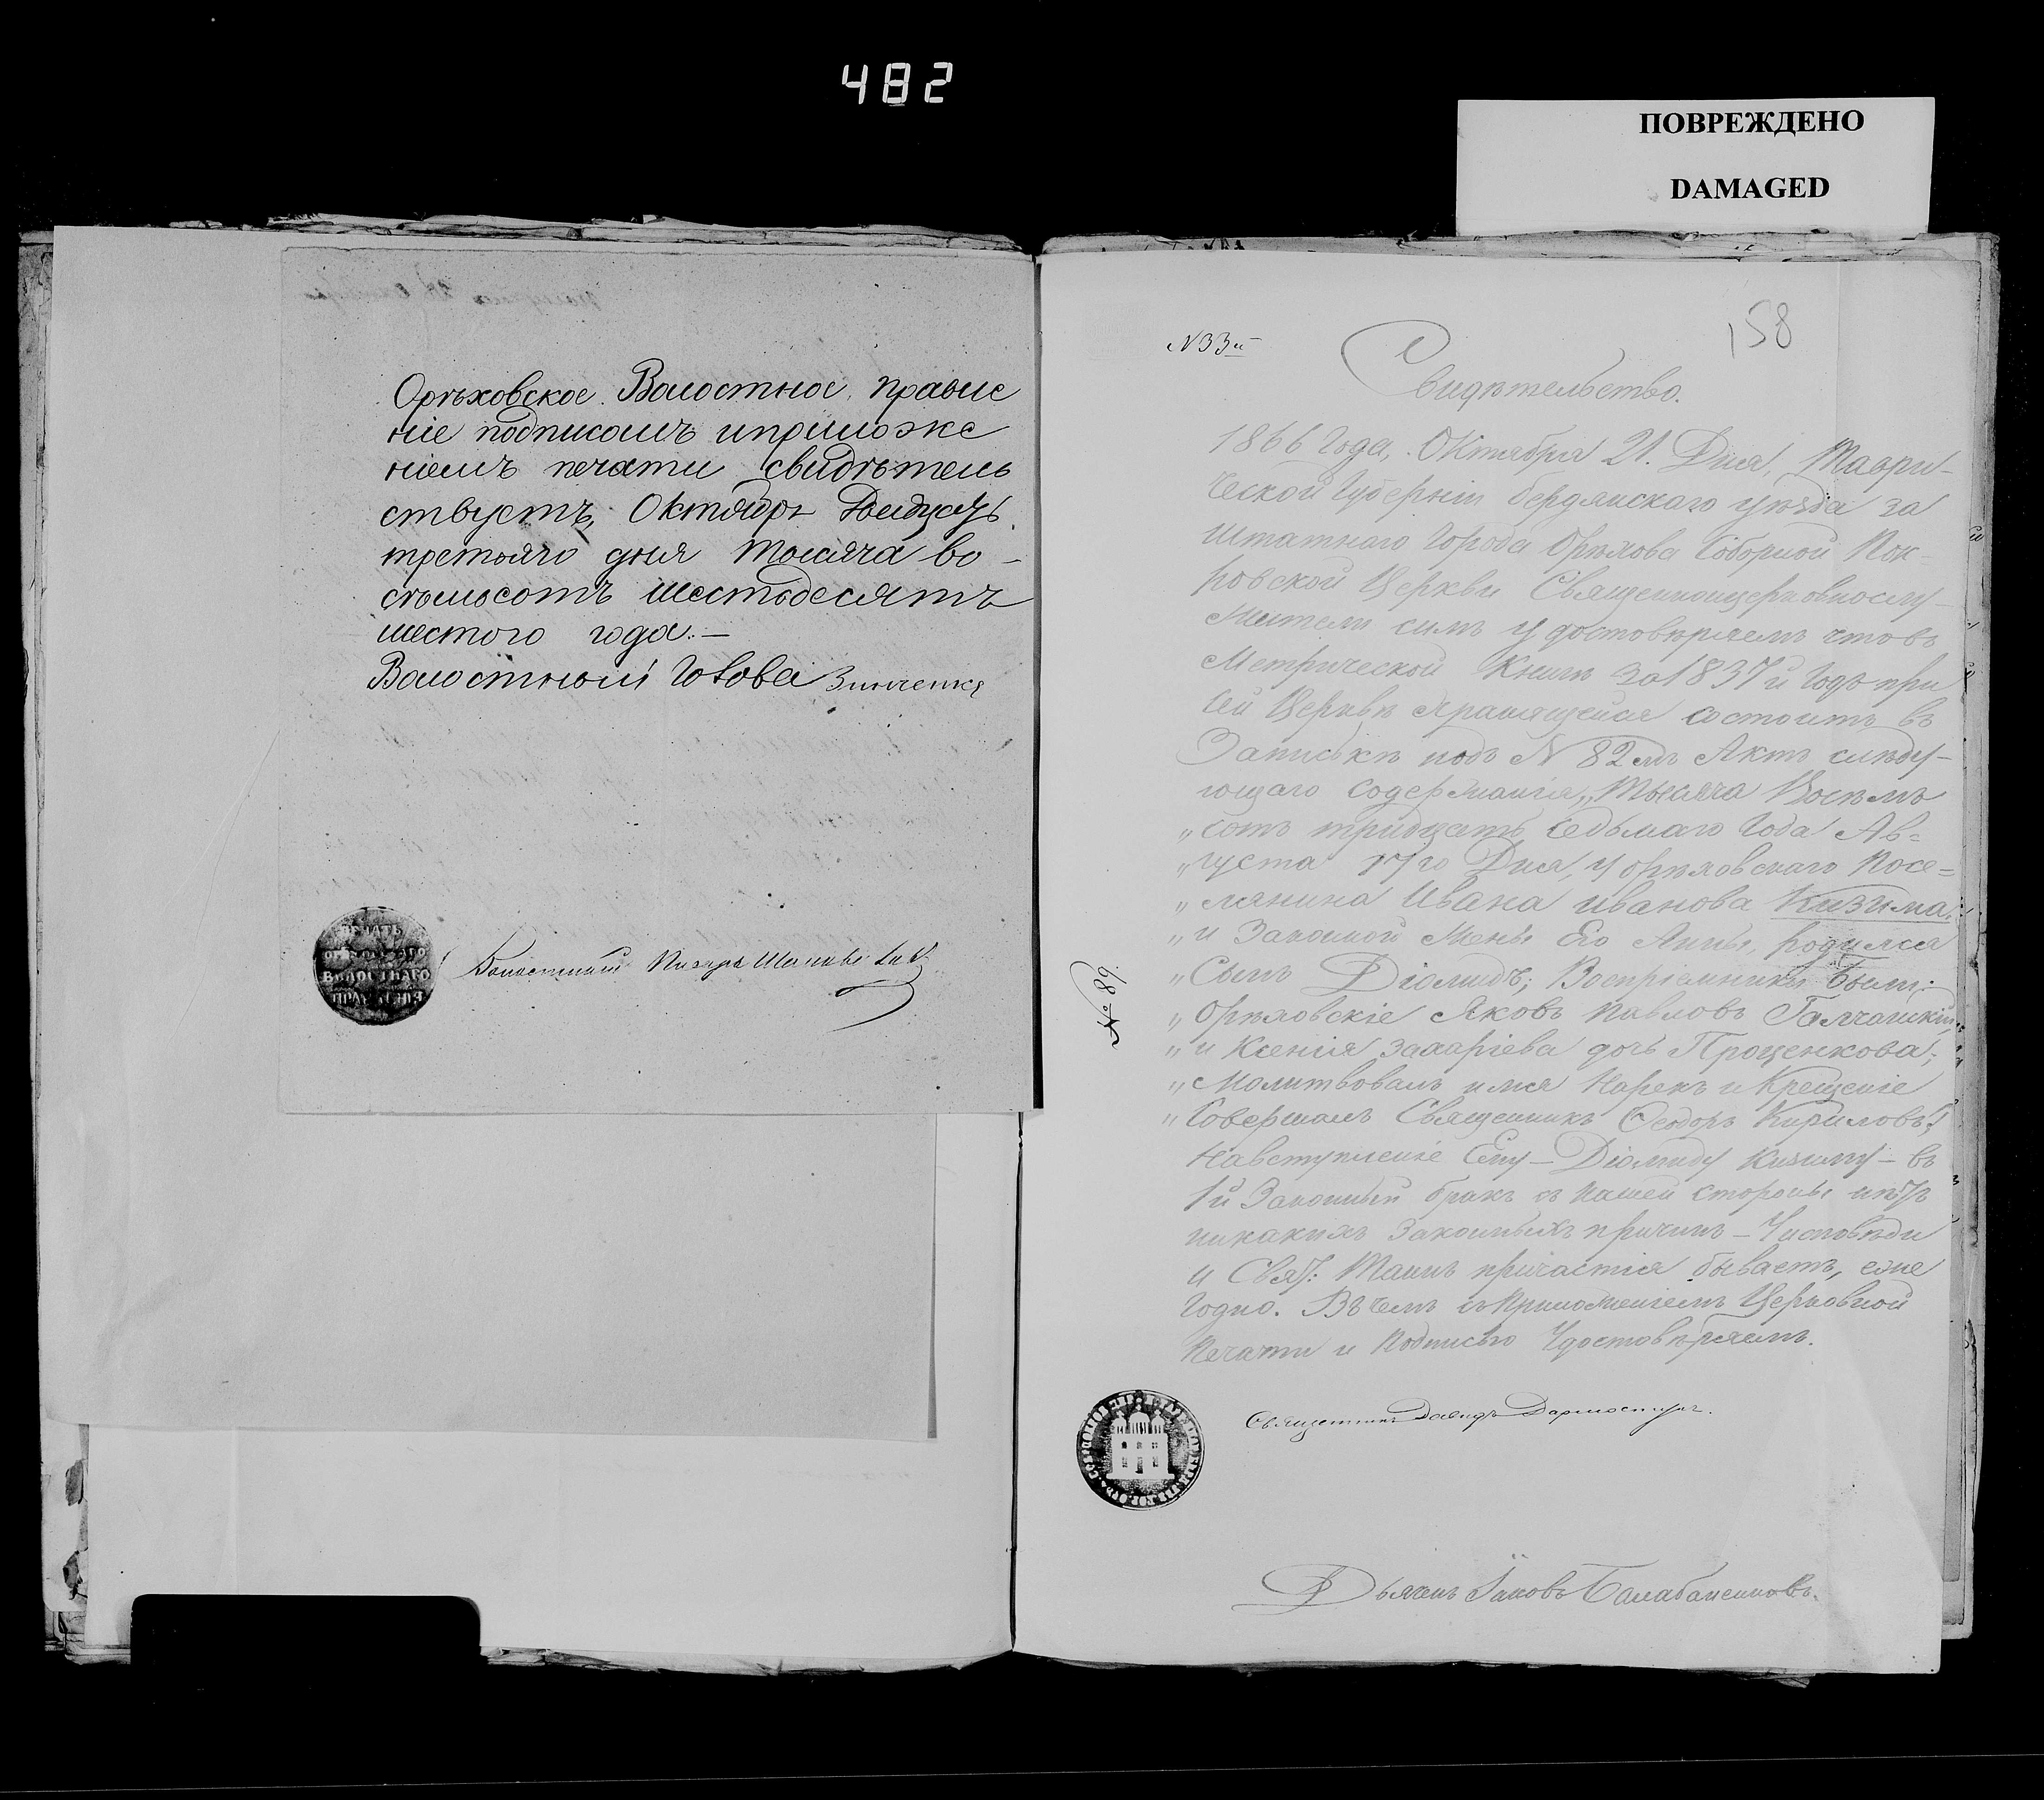 482
ПОВРЕЖДЕНО
DAMAGED
Орѣховское Волостное правле
ніе подписомъ иприложе
ніемъ печати свидѣтель
ствуетъ, Октября Двадцать
третьяго дня тысяча во-
сѣмьсотъ шестьдесятъ
шестого года.—
Волостной Голова Зинченко
ПЕЧАТЬ
ВОЛОСТНАГО
Волостный Писарь
158
N 33й
Свидѣтельство.
1866 Года, Октября 21. Дня, Таври-
ческой Губерніи бердянскаго уѣзда за
штатнаго Города Орѣхова Соборной Пок-
ровской Церкви Священноцерковнослу-
жители симъ удостовѣряемъ чтовъ
Метрической Книгѣ за 1837й Годъ при
сей Церквѣ хранящейся состоитъ въ
Запискѣ подъ N 82мъ Актъ слѣду-
ющаго содержанія, „Тысяча Восѣмъ
„сотъ тридцать седьмаго Года Ав=
„густа 17го Дня, у орѣховскаго Посе=
„лянина Ивана иванова Кизима
„и Законной Жены Его Анны, родился
„Сынъ Діомидъ; Воспріемники были:
„Орѣховскіе Яковъ Павловъ
„и Ксенія Захаріева дочь Проценкова;
„Молитвовалъ имя Нарекъ и Крещеніе
„Совершалъ Священникъ Ѳеодоръ Кириловъ;
Навступленіе Ему — Діомиду Кизиму — въ
1й Законный бракъ съ нашей стороны нѣтъ
никакихъ Законныхъ причинъ — Уисповѣди
и Свят: Таинъ причастія бываетъ, еже
годно. Въ чемъ съ Приложеніемъ Церковной
Печати и Подписью Удостовѣряемъ.
№ 89.
Священникъ Давидъ
Дьячекъ Іаковъ Балабаненковъ.